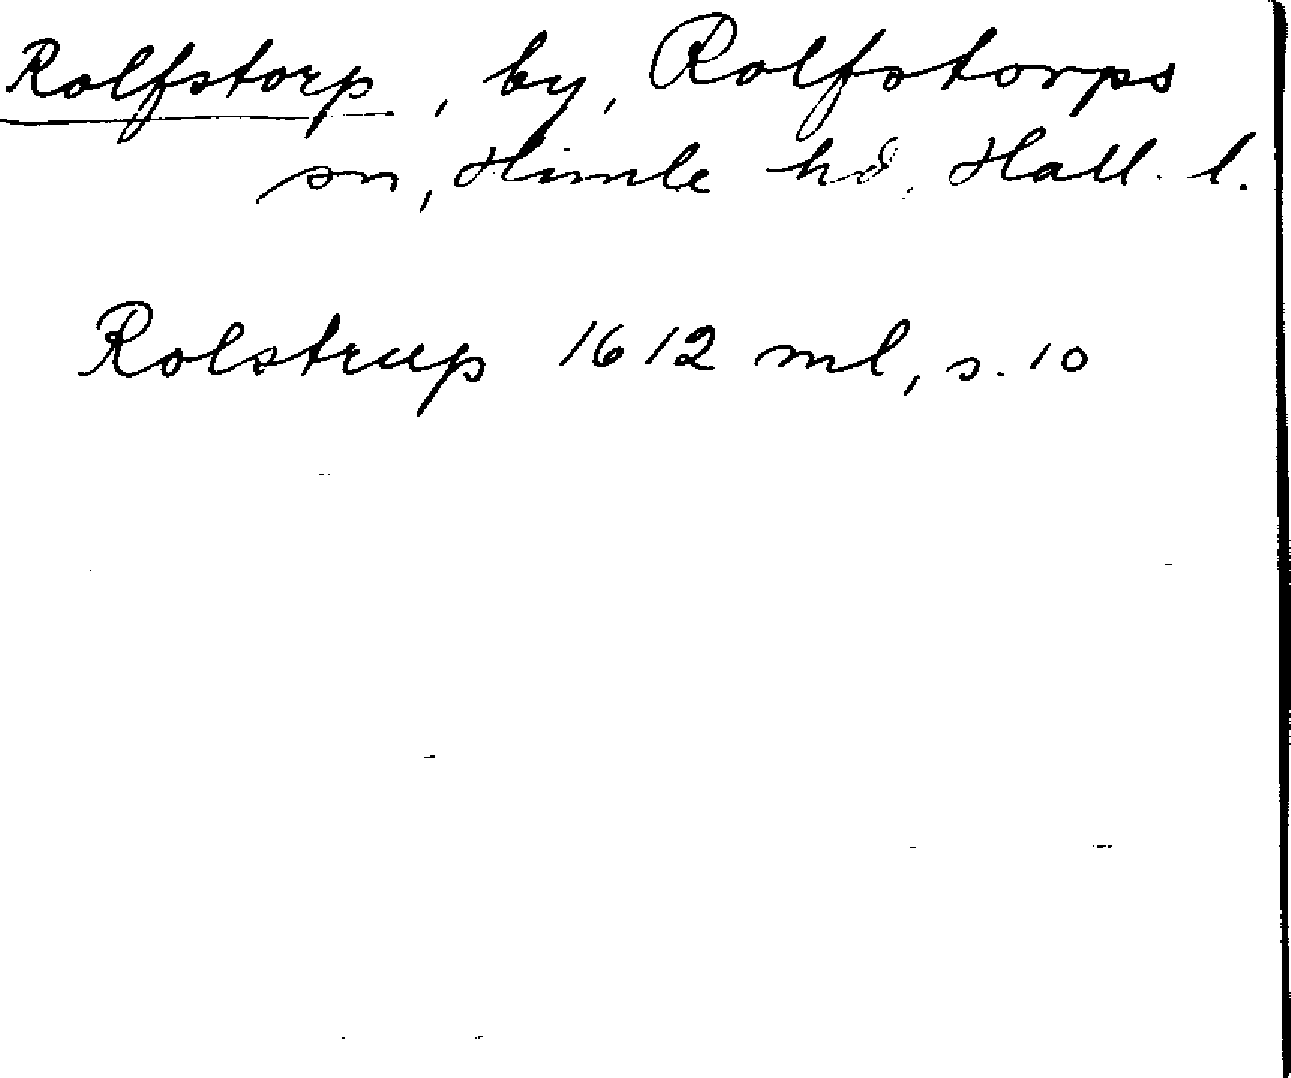 Rolfstorp, by, Rolfstorps
sn, Himle hd, Hall. l.
Rolstrup 1612 ml, s. 10